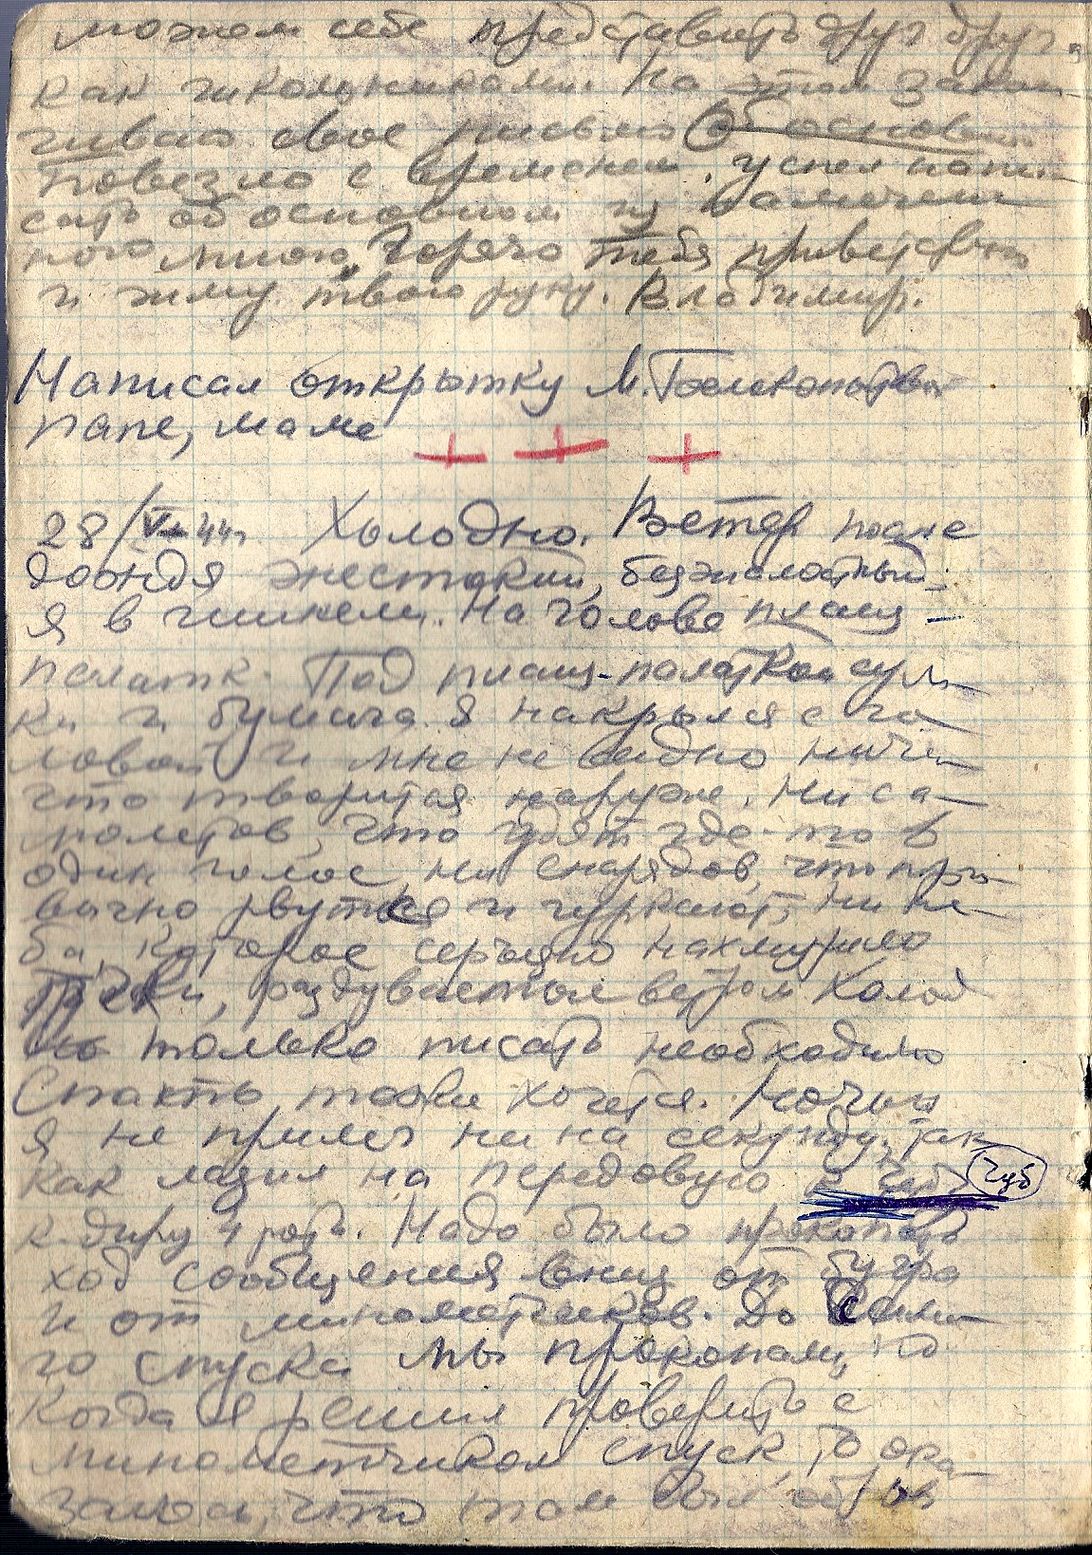 можем себе представить друг друг
как школьниками. На этом закан-
чиваю свое письмо
Повезло с временем, успел напи-
сать об основном из намечен
ного мною. Горячо тебя приветствую
и жму твою руку. Владимир.
Написал открытку М.
папе, маме
+ + +
28/VI 44г. Холодно. Ветер после
дождя жестокий, безжалостный.
Я в шинели. На голове плащ-
палатк. Под плащ-палаткой сум-
ки и бумага. Я накрылся с го-
ловой и мне не видно ничего
что творится наруже. Ни са-
молетов, что гудят где-то в
один голос, ни снарядов, что при-
вычно рвутся и шуркают, ни не-
ба, которое серьезно нахмурило
тучки, раздуваемые ветром. Холод
но только писать необходимо
Спать тоже хочется. Ночью
я не прилег ни на секунду, так
как лазил на передовую Чуб
к-диру 4 роты. Надо было прокопать
ход сообщения вниз от бугра
и от минометчиков. До самого
го спуска мы прокопали, но
когда я решил проверить с
минометчиком спуск, то ока-
залось, что там был обрыв